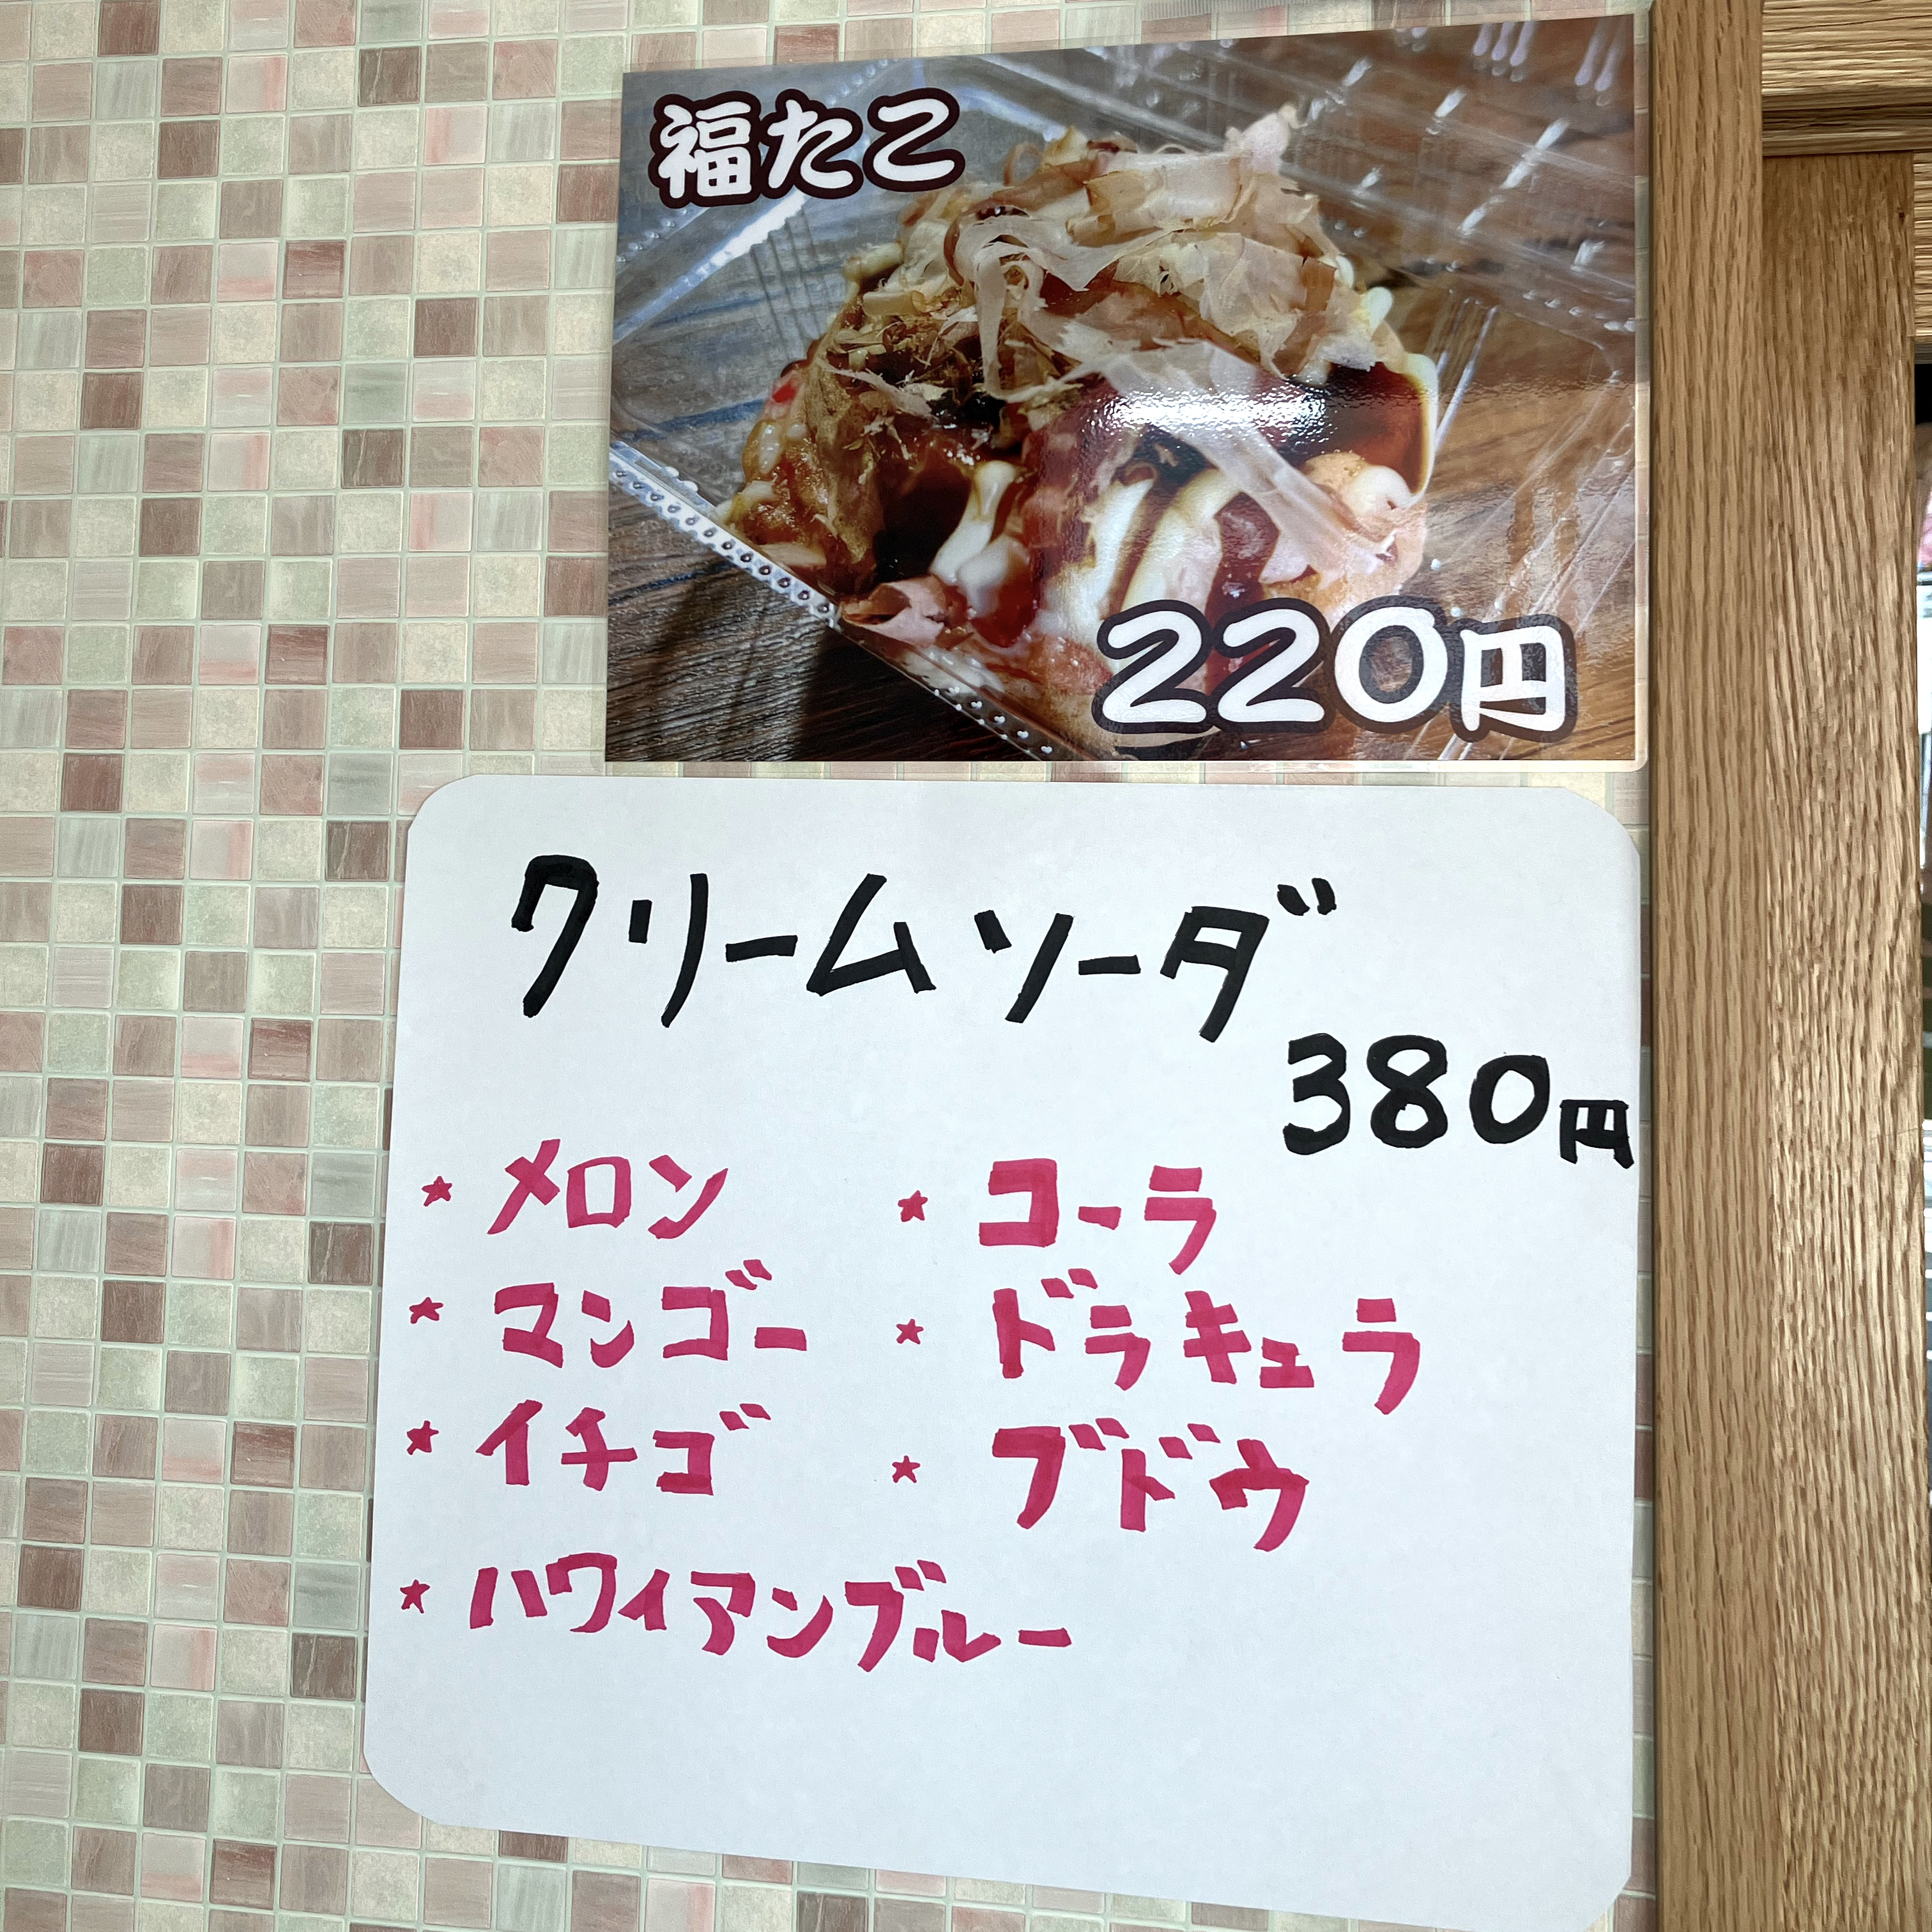 福たこ
220円
クリームソーダ
380円
★ メロン ★ コーラ
★ マンゴー ★ ドラキュラ
★ イチゴ ★ ブドウ
★ ハワイアンブルー